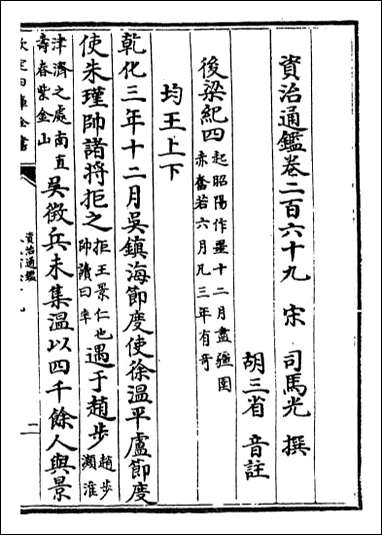 資治通鑑卷二百六十九　宋　司馬光　撰
胡三省　音註
後梁紀四起昭陽作噩十二月盡彊圉赤奮若六月凡三年有奇
均王上下
乾化三年十二月吳鎮海節度使徐溫平盧節度
使朱瑾帥諸將拒之拒王景仁也帥讀曰率遇于趙步趙步瀕淮
津濟之處南直壽春紫金山吳徵兵未集溫以四千餘人與景
資治通鑑